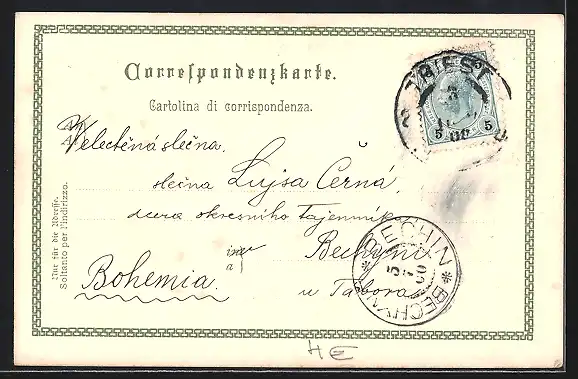 Correſpondenzkarte.
Cartolina di corrispondenza.
TRIEST
5 5
Velectěná slečna,
slečna Lujsa Černá,
dcera okresního tajemníka
Bechyni
Bohemia.
u Tábora
BECHIN
* BECHYN *
Nur für die Adreſſe.
Soltanto per l'indirizzo.
HE